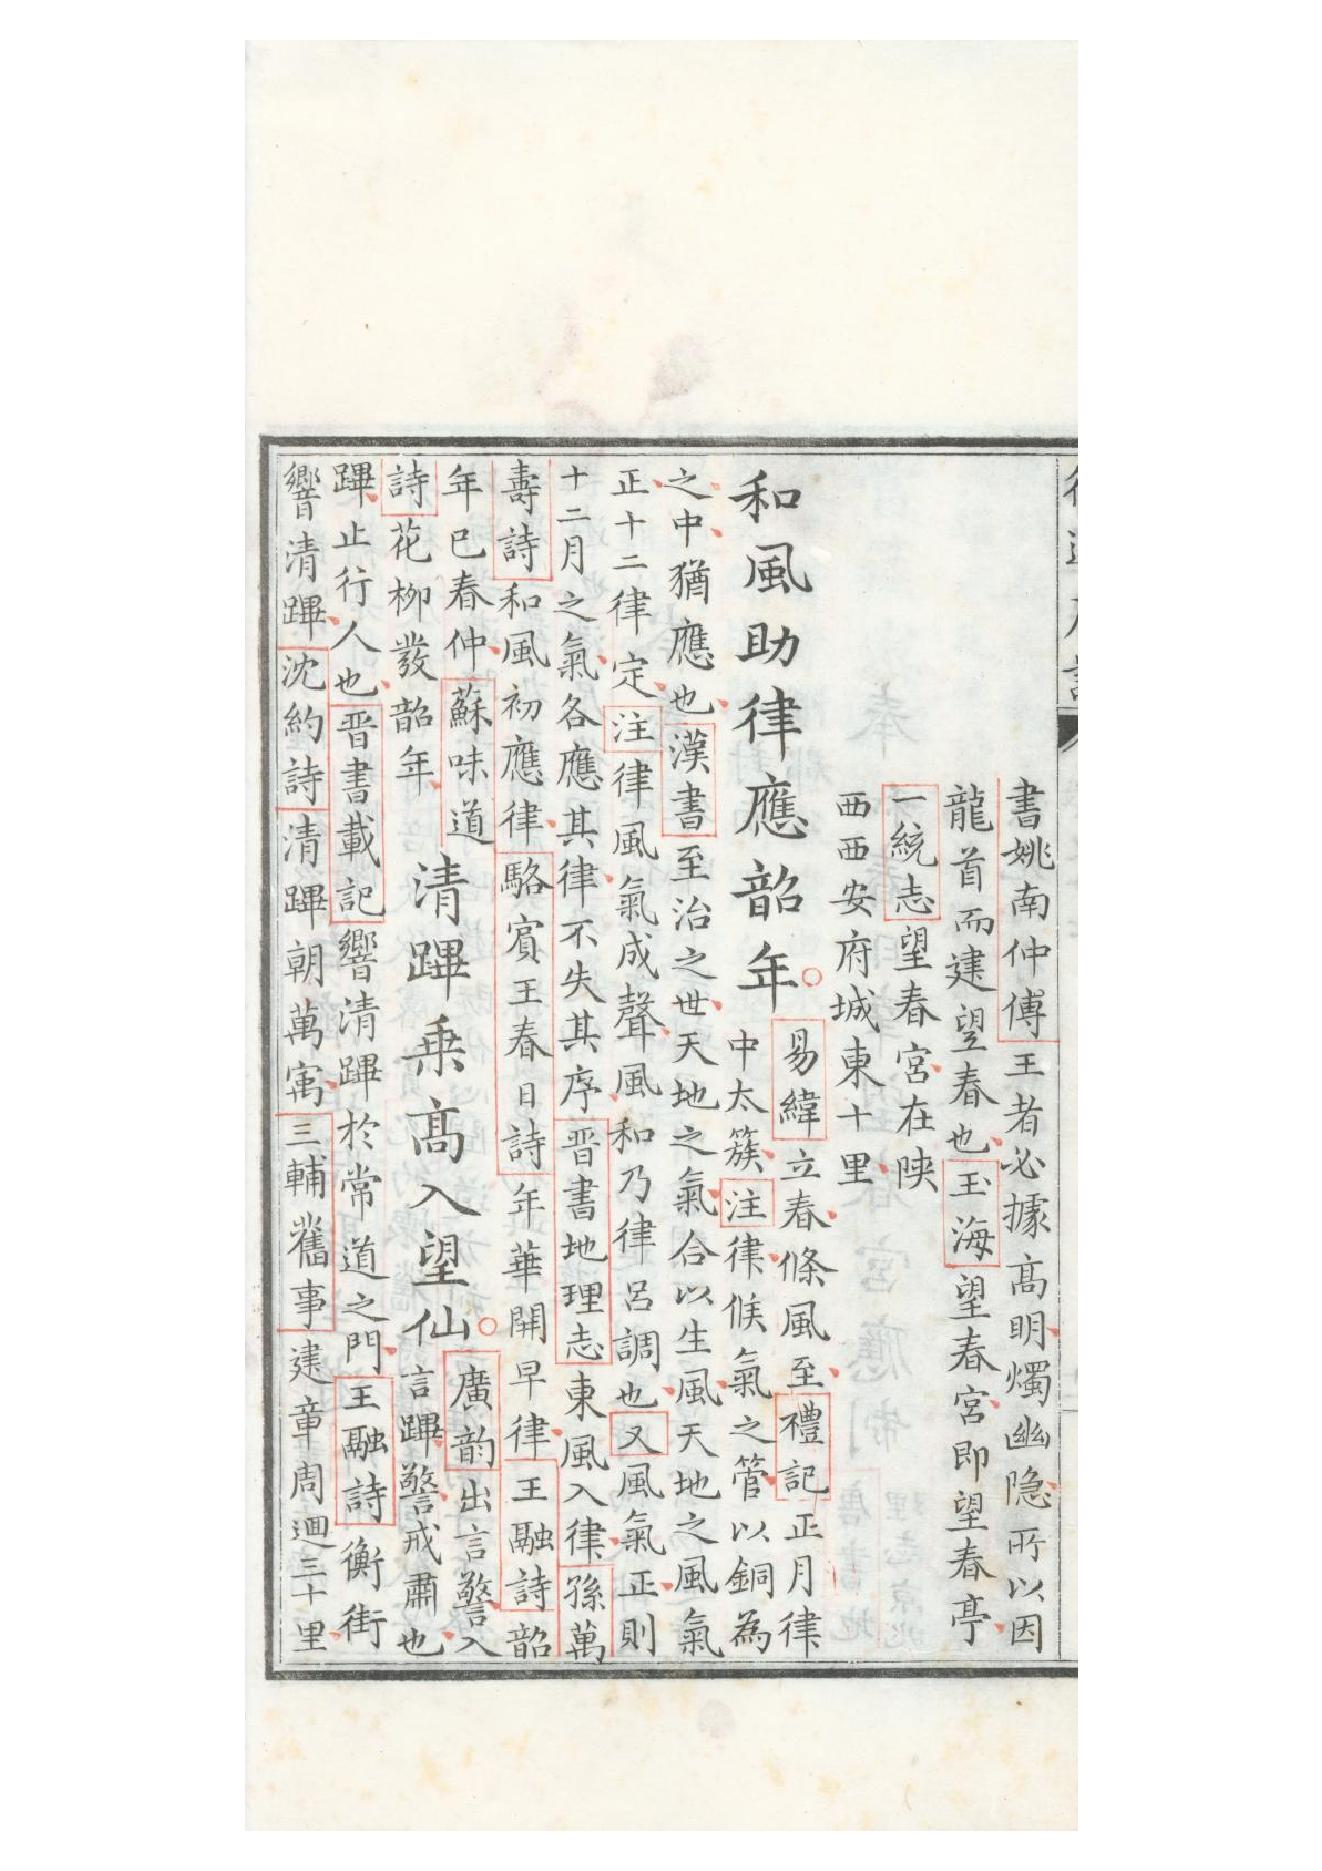 書姚南仲傅王者必據高明燭幽隐所以因
龍首而建望春也玉海望春宮即望春亭
一統志望春宮在陕
西西安府城東十里
和風助律應韶年
易緯立春條風至禮記正月律
中太簇注律候氣之管以銅為
之中猶應也漢書至治之世天地之氣合以生風天地之風氣
正十二律定注律風氣成聲風和乃律呂調也又風氣正則
十二月之氣各應其律不失其序晋書地理志東風入律孫萬
壽詩和風初應律駱賓王春日詩年華開早律王融詩韶
年巳春仲蘇味道
詩花柳發韶年
清蹕乗高入望仙
廣韵出言警入
言蹕警戒肅也
蹕止行人也晋書載記響清蹕於常道之門王融詩衡街
響清蹕沈約詩清蹕朝萬㝢三輔舊事建章周迴三十里